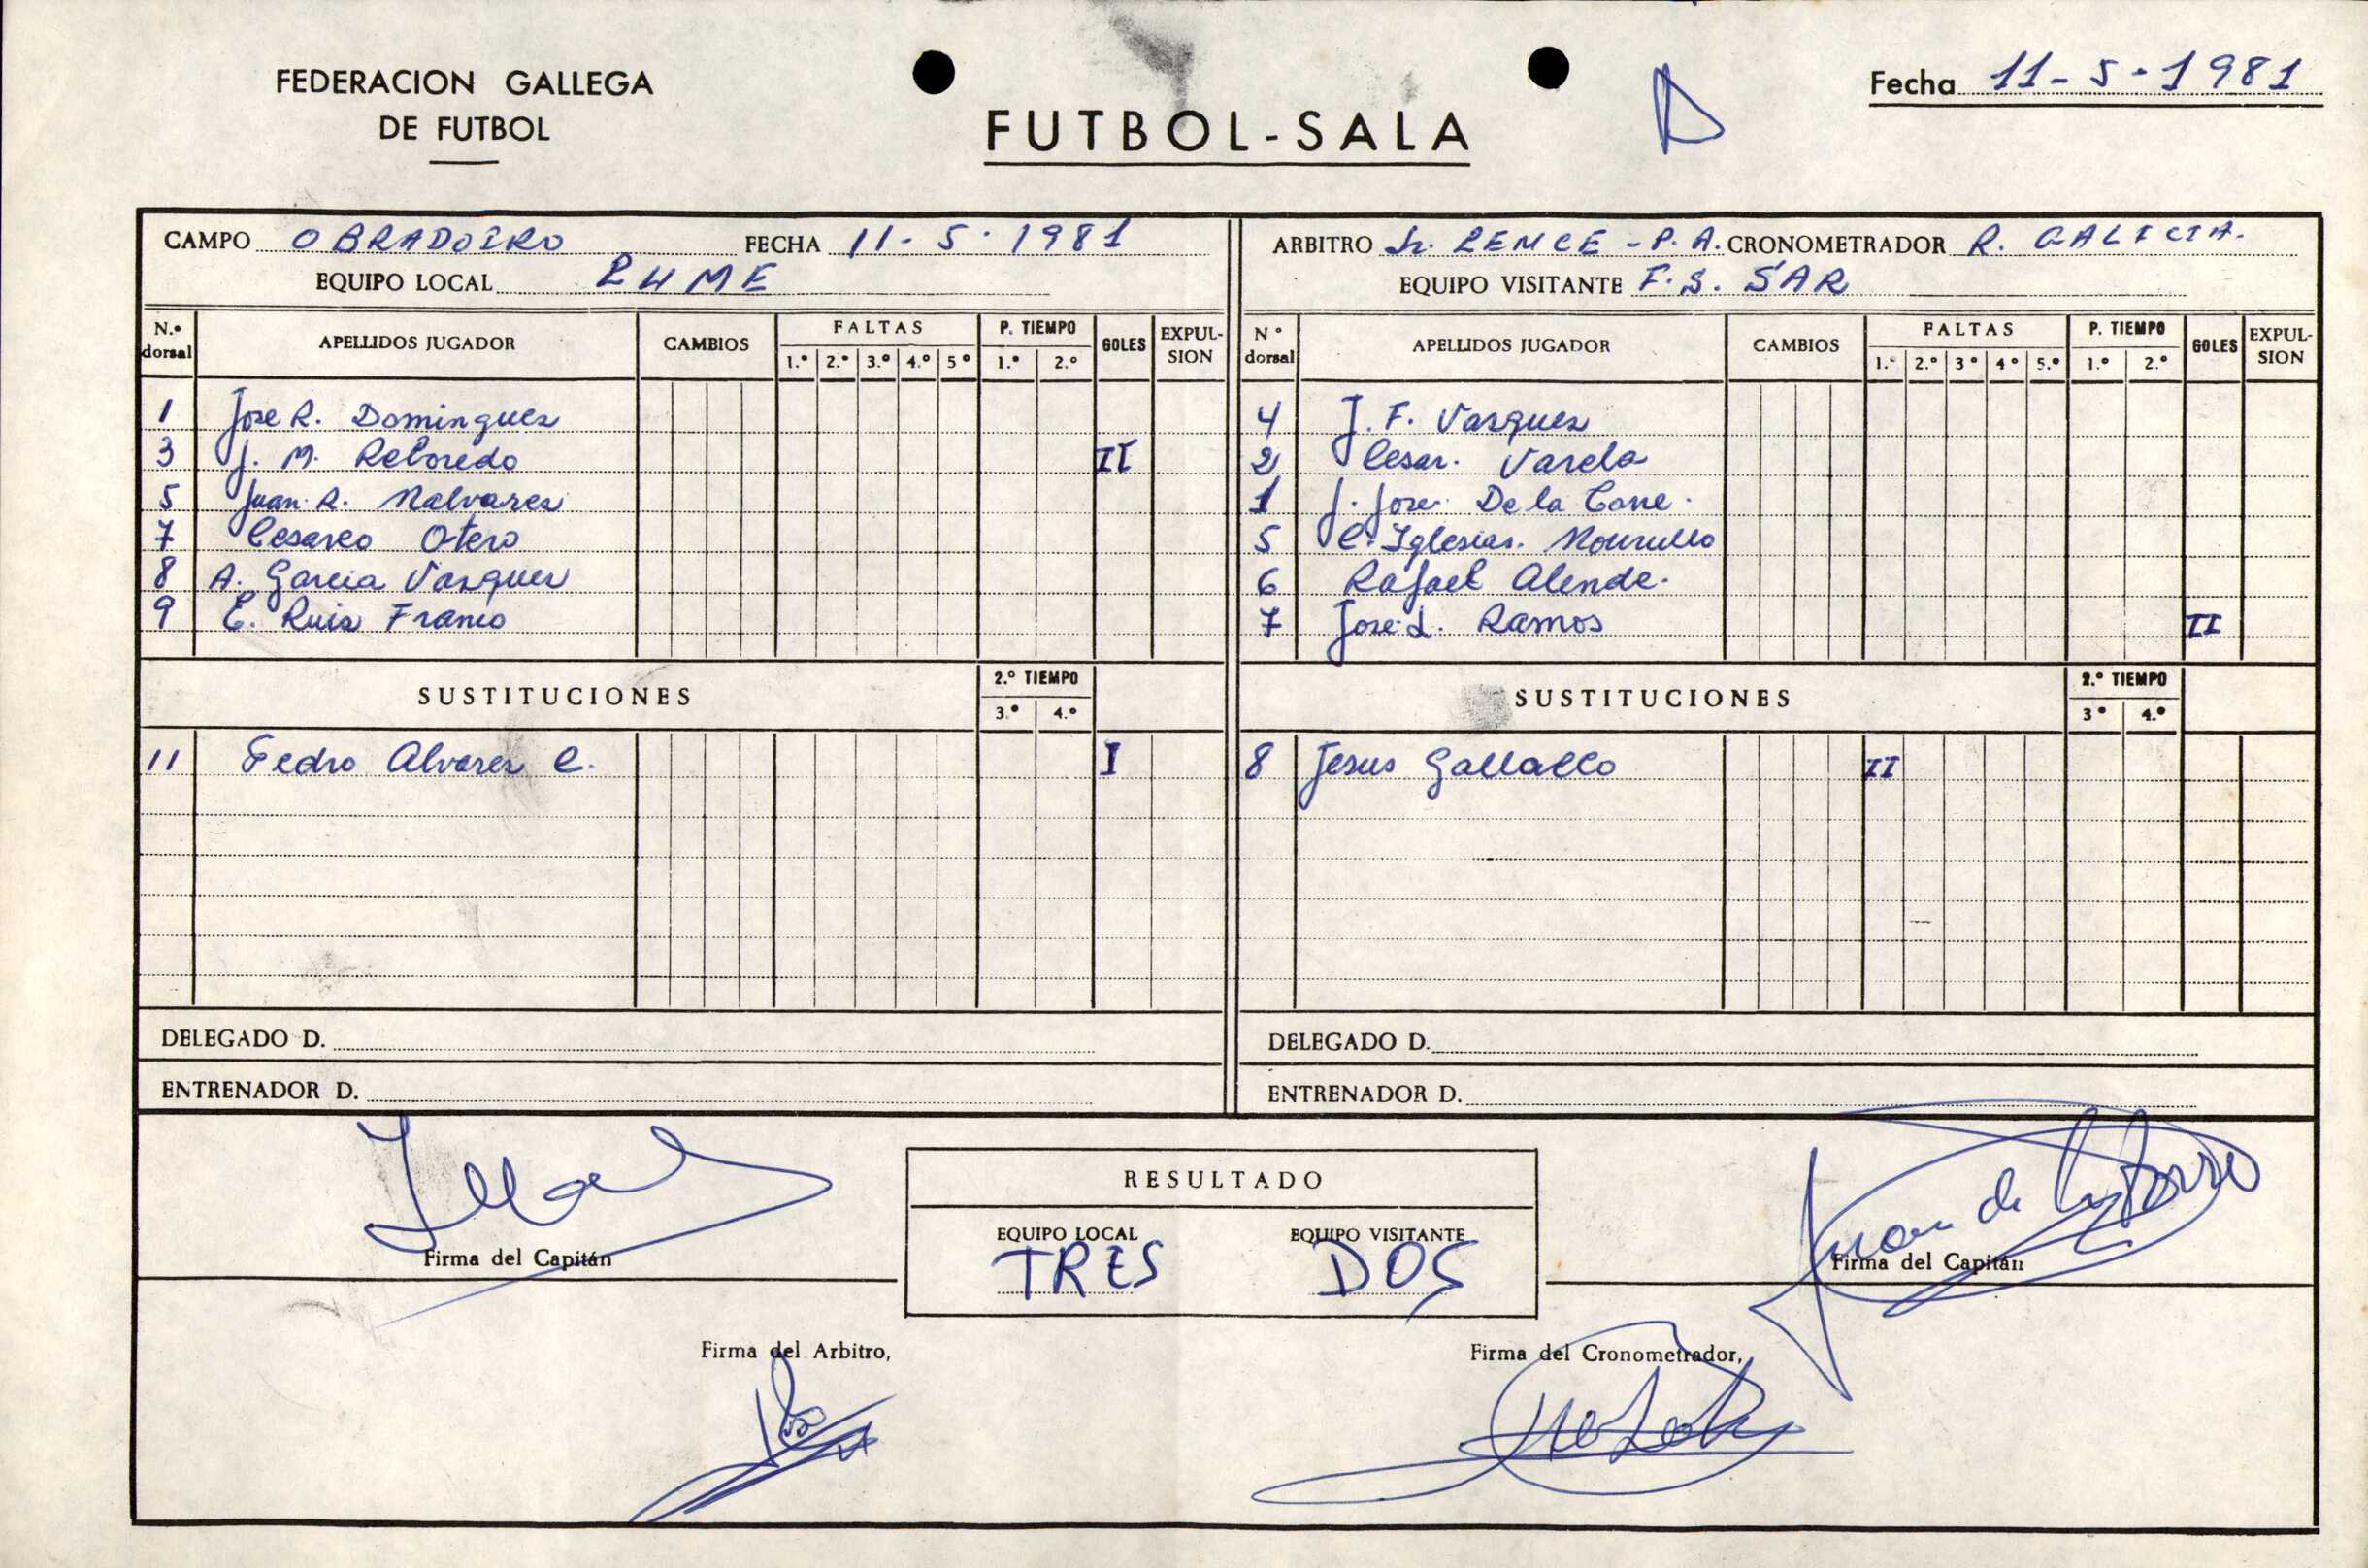 FEDERACION GALLEGA
DE FUTBOL
FUTBOL-SALA
Fecha 11-5-1981
CAMPO OBRADOIRO FECHA 11-5-1981
EQUIPO LOCAL LUME
N.º dorsal APELLIDOS JUGADOR CAMBIOS FALTAS 1.º 2.º 3.º 4.º 5º P. TIEMPO 1.º 2.º GOLES EXPULSION
1 Jose R. Dominguez
3 J. M. Reboredo II
5 Juan R. Malvarez
7 Cesareo Otero
8 A. Garcia Vazquez
9 E. Ruiz Franco
SUSTITUCIONES 2.º TIEMPO 3.º 4.º
11 Pedro Alvarez C. I
DELEGADO D.
ENTRENADOR D.
ARBITRO Sr. LENCE - P.A. CRONOMETRADOR R. GALICIA.
EQUIPO VISITANTE F.S. SAR
Nº dorsal APELLIDOS JUGADOR CAMBIOS FALTAS 1.º 2.º 3º 4º 5.º P. TIEMPO 1.º 2.º GOLES EXPULSION
4 J. F. Vazquez
2 Cesar. Varela
1 J. Jose De la Torre.
5 C. Iglesias. Mourullo
6 Rafael Alende.
7 Jose L. Ramos II
SUSTITUCIONES 2.º TIEMPO 3º 4.º
8 Jesus Gallallo II
DELEGADO D.
ENTRENADOR D.
Firma del Capitán
RESULTADO
EQUIPO LOCAL EQUIPO VISITANTE
TRES DOS
Juan de la Torre
Firma del Capitán
Firma del Arbitro,
Firma del Cronometrador,